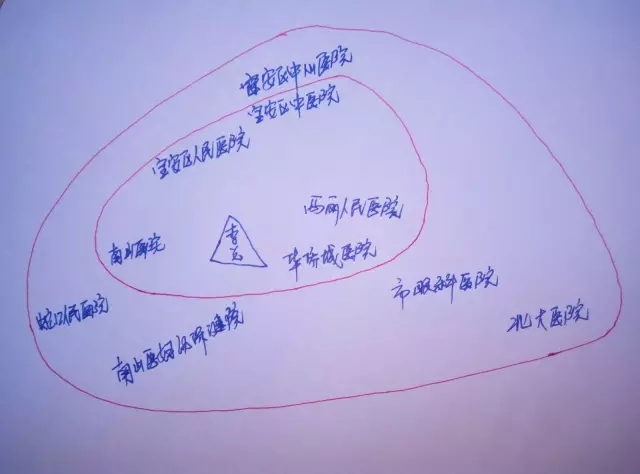 宝安区中心医院
宝安区中医院
宝安区人民医院
西丽人民医院
南山医院
华侨城医院
蛇口人民医院
市眼科医院
北大医院